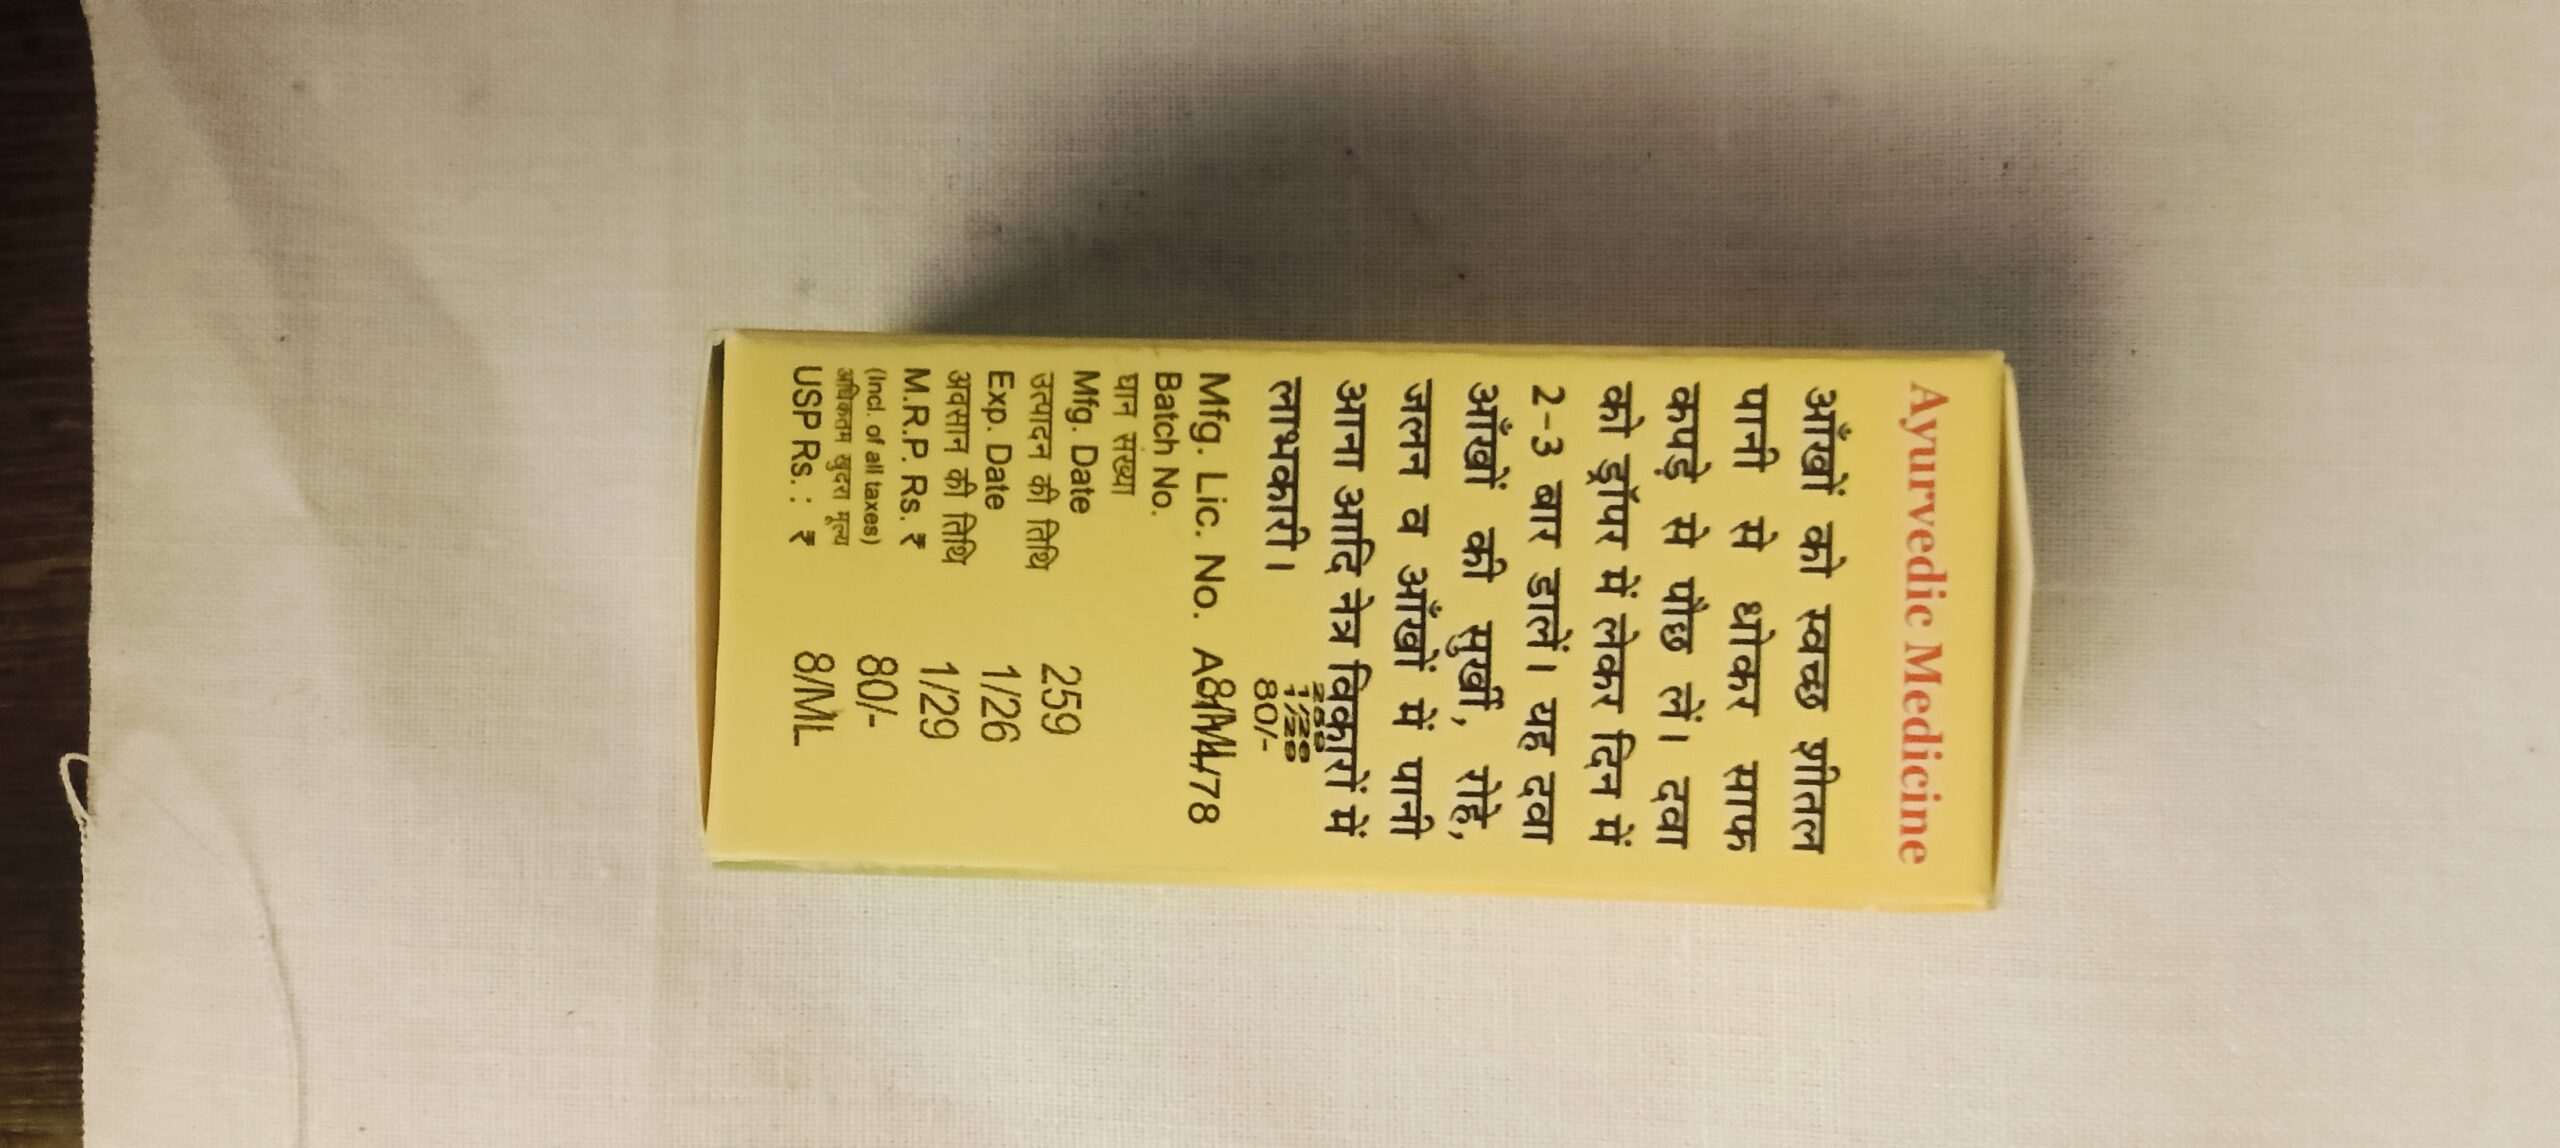 Ayurvedic Medicine
आँखों को स्वच्छ शीतल
पानी से धोकर साफ
कपड़े से पौंछ लें। दवा
को ड्रॉपर में लेकर दिन में
2-3 बार डालें। यह दवा
आँखों की सुर्खी, रोहे,
जलन व आँखों में पानी
आना आदि नेत्र विकारों में
लाभकारी।
80/-
Mfg. Lic. No.
Batch No.
घान संख्या
Mfg. Date 259
उत्पादन की तिथि
Exp. Date 1/26
अवसान की तिथि
M.R.P. Rs. ₹ 1/29
(Incl. of all taxes) 80/-
अधिकतम खुदरा मूल्य
USP Rs. : ₹ 8/ML